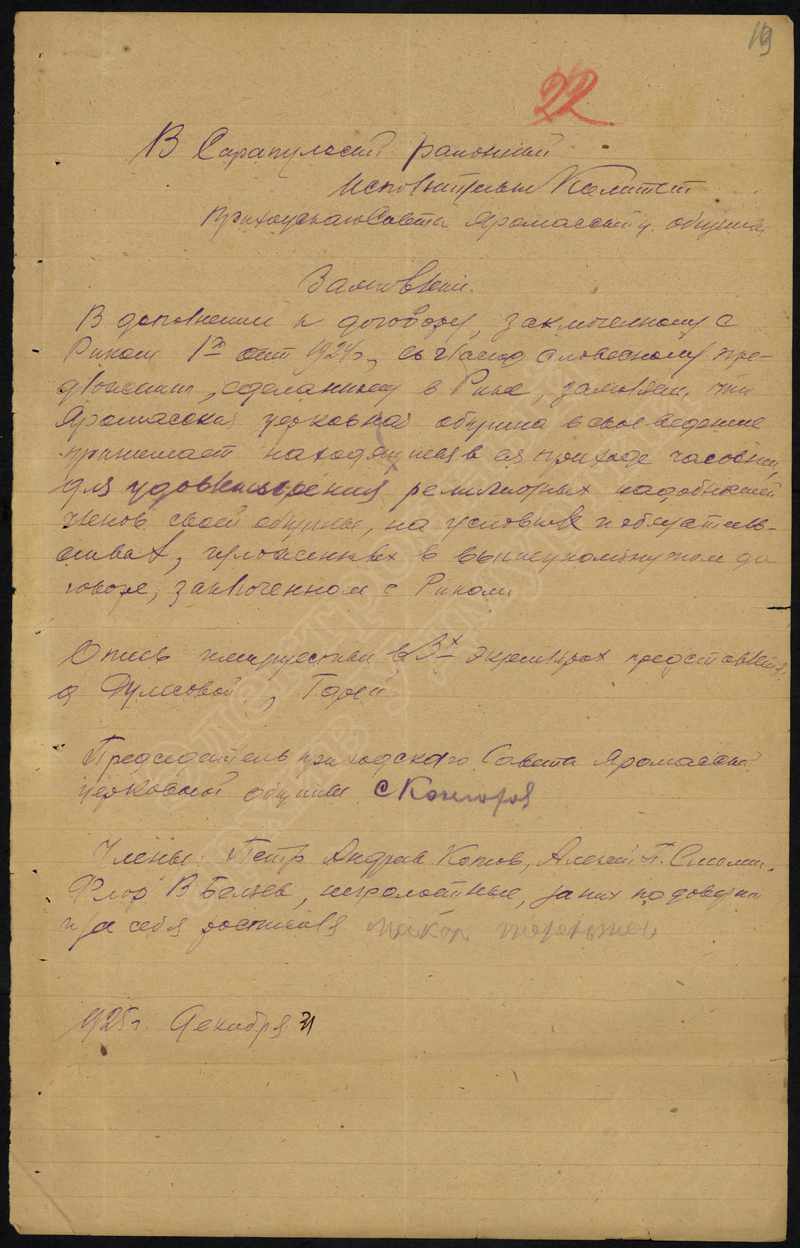 19
22
В Сарапульский районный
Исполнительн Комитет
Приходскаго Совета Яромасской общины
Заявление.
В дополнении к договору, заключенному с
Риком 1го окт 1924 г, согласно словесному пре-
дложению, сделанному в Рике, заявляем, что
Яромасская церковная община в свое ведение
принимает находящияся в ея приходе часовни,
для удовлетворения религиозных надобностей
членов своей общины, на условиях и обязатель-
ствах, изложенных в вышеупомянутом до
говоре, заключенном с Риком.
Опись имущества в 3х экземплярах представляется
Председатель приходского Совета Яромасской
церковной общины С
Члены: Петр Андрев Котов, Алексей П.
Флор В Беляев, неграмотные, за них по доверию
и за себя
1925 г. Декабря 31